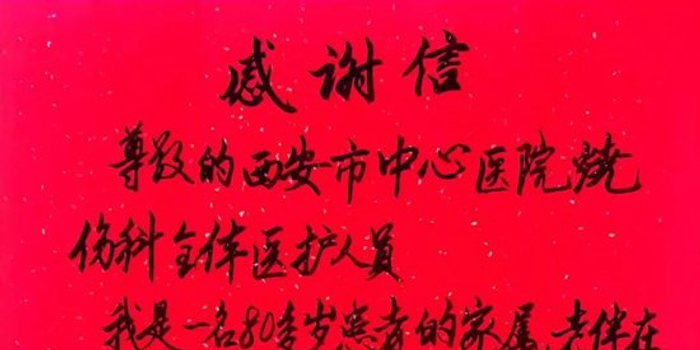 感谢信
尊敬的西安市中心医院烧
伤科全体医护人员
我是一名80多岁患者的家属，老伴在